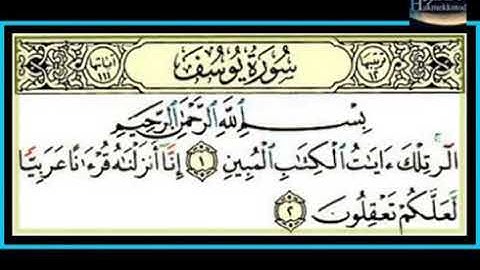 ترتيبها ١٢ سُورَةُ يُوسُفَ آياتها ١١١
بِسْمِ ٱللَّهِ ٱلرَّحْمَٰنِ ٱلرَّحِيمِ
الٓر تِلْكَ ءَايَٰتُ ٱلْكِتَٰبِ ٱلْمُبِينِ ١ إِنَّآ أَنزَلْنَٰهُ قُرْءَٰنًا عَرَبِيًّا
لَّعَلَّكُمْ تَعْقِلُونَ ٢